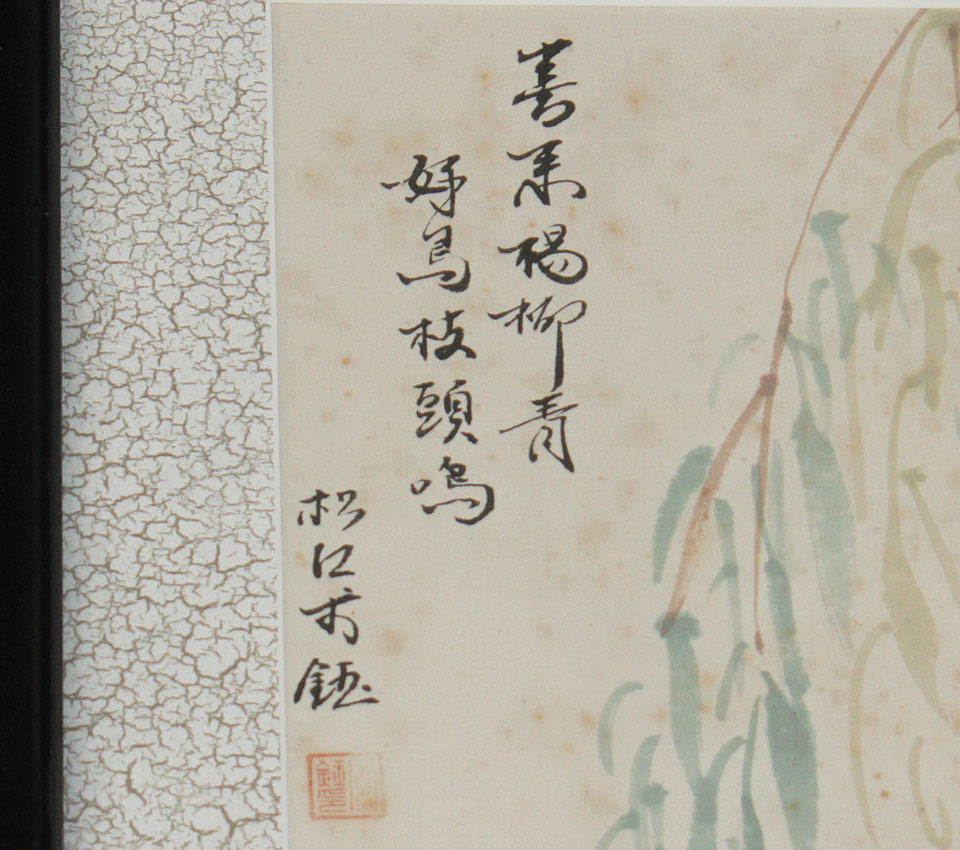 春来楊柳青
好鳥枝頭鳴
松江鈺